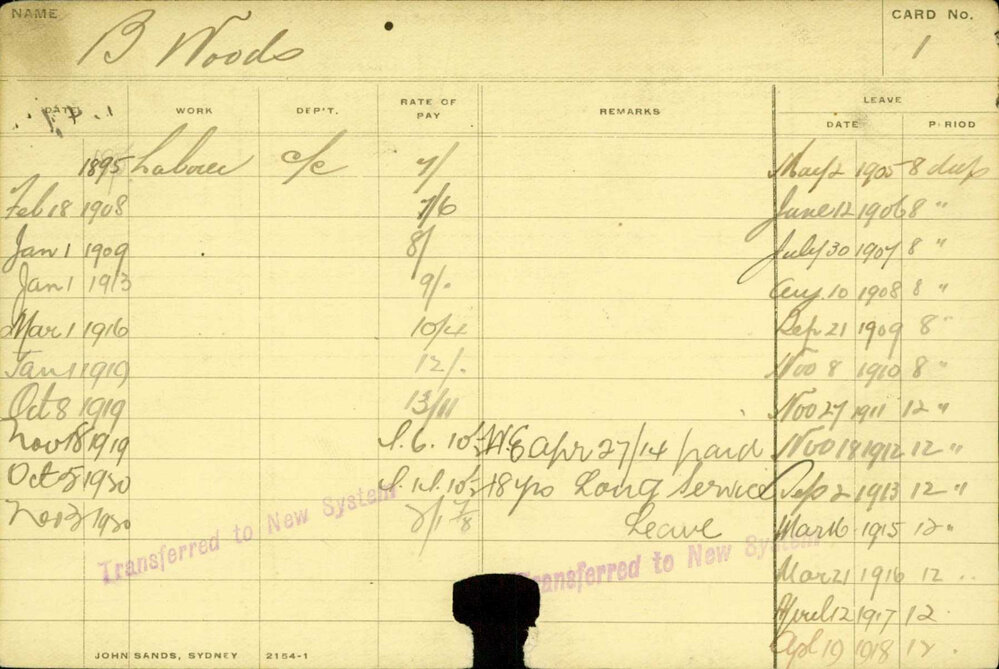 NAME B Woods CARD No. 1
LEAVE
DATE WORK DEP'T. RATE OF PAY REMARKS DATE PERIOD
1895 Labourer c/c 7/ May 2 1905 8 days
Feb 18 1908 7/6 June 12 1906 8 "
Jan 1 1909 8/ July 30 1907 8 "
Jan 1 1913 9/- Aug 10 1908 8 "
Mar 1 1916 10/4 Sep 21 1909 8 "
Jan 1 1919 12/- Nov 8 1910 8 "
Oct 8 1919 13/11 Nov 27 1911 12 "
Nov 18 1919 10½ W.E apr 27/14 paid Nov 18 1912 12 "
Oct 1920 10½ 18 yrs Long Service Sep 2 1913 12 "
1920 Leave Mar 16 1915 12 "
Transferred to New System
Transferred to New System
Mar 21 1916 12 ..
April 12 1917 12 .
Apl 19 1918 12 .
JOHN SANDS, SYDNEY 2154-1